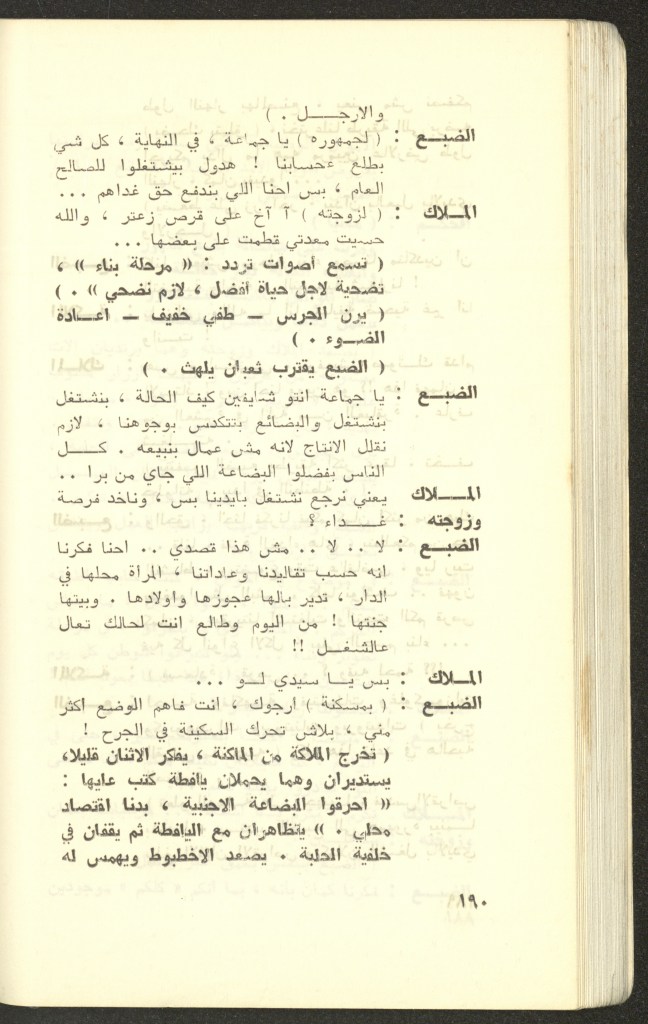 والارجــــل . )
الضبــع : ( لجمهوره ) يا جماعة ، في النهاية ، كل شي
بطلع عحسابنا ! هدول بيشتغلوا للصالح
العام ، بس احنا اللي بندفع حق غداهم ...
المــلاك : ( لزوجته ) آ آخ على قرص زعتر ، والله
حسيت معدتي قطمت على بعضها ...
( تسمع أصوات تردد : « مرحلة بناء » ،
تضحية لاجل حياة أفضل ، لازم نضحي » . )
( يرن الجرس — طفي خفيف — اعــادة
الضــوء . )
( الضبع يقترب ثعبان يلهث . )
الضبــع : يا جماعة انتو شايفين كيف الحالة ، بنشتغل
بنشتغل والبضائع بتتكدس بوجوهنا ، لازم
نقلل الانتاج لانه مش عمال بنبيعه . كــــل
الناس بفضلوا البضاعة اللي جاي من برا ..
المـــلاك يعني نرجع نشتغل بايدينا بس ، وناخد فرصة
وزوجته : غـــداء ؟
الضبــع : لا .. لا .. مش هذا قصدي .. احنا فكرنا
انه حسب تقاليدنا وعاداتنا ، المرأة محلها في
الدار ، تدير بالها عجوزها واولادها . وبيتها
جنتها ! من اليوم وطالع انت لحالك تعال
عالشغل !!
المــلاك : بس يــا سيدي لــو ...
الضبــع : ( بمسكنة ) ارجوك ، انت فاهم الوضع اكثر
مني ، بلاش تحرك السكينة في الجرح !
( تخرج الملاكة من الماكنة ، يفكر الاثنان قليلا،
يستديران وهما يحملان يافطة كتب عايها :
« احرقوا البضاعة الاجنبية ، بدنا اقتصاد
محلي . » يتظاهران مع اليافطة ثم يقفان في
خلفية الحلبة . يصعد الاخطبوط ويهمس له
١٩٠